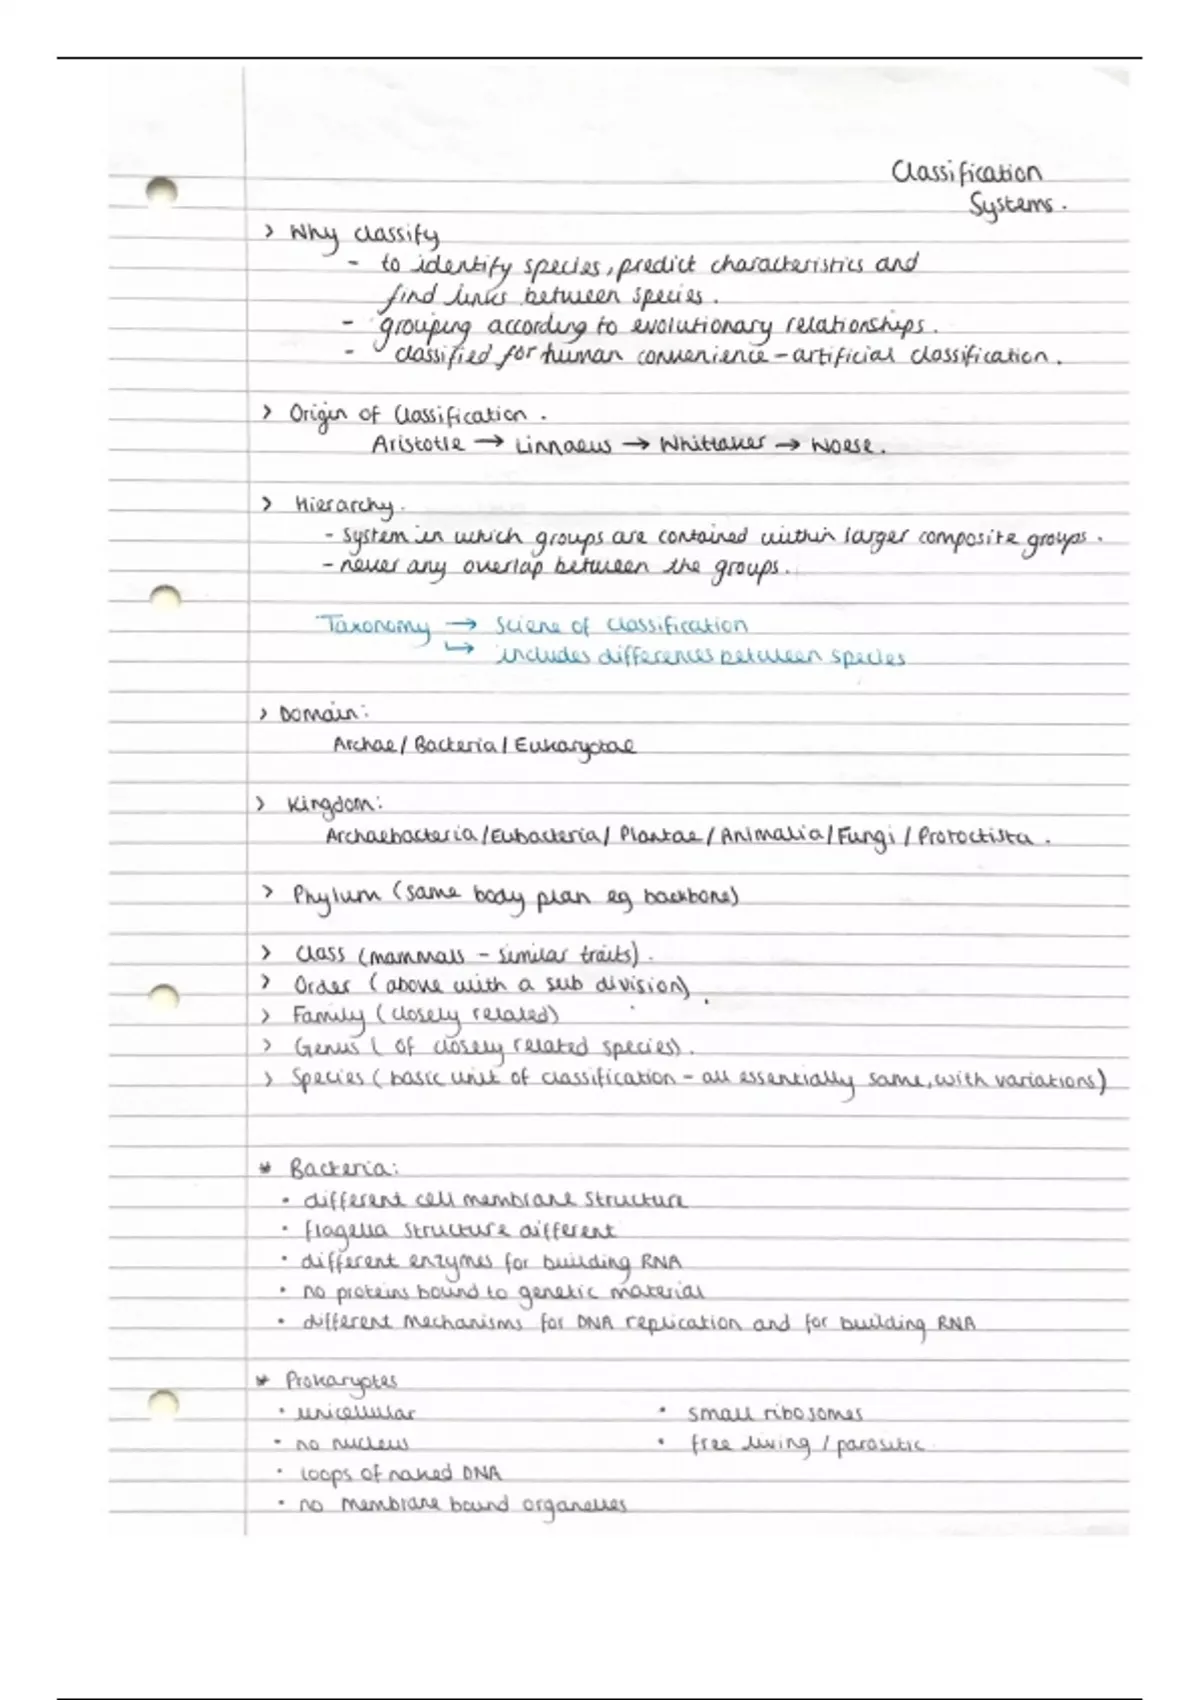 Classification
Systems.
> Why classify
- to identify species, predict characteristics and
find links between species.
- grouping according to evolutionary relationships.
- classified for human convenience - artificial classification.
> Origin of Classification.
Aristotle → Linnaeus → Whittaker → Woese.
> Hierarchy.
- System in which groups are contained within larger composite groups.
- never any overlap between the groups.
Taxonomy → Science of classification
↳ includes differences between species
> Domain:
Archae / Bacteria / Eukaryotae
> Kingdom:
Archaebacteria / Eubacteria / Plantae / Animalia / Fungi / Protoctista.
> Phylum (same body plan eg backbone)
> Class (mammals - similar traits).
> Order (above with a sub division)
> Family (closely related)
> Genus (of closely related species).
> Species (basic unit of classification - all essentially same, with variations)
* Bacteria:
• different cell membrane structure
• flagella structure different
• different enzymes for building RNA
• no proteins bound to genetic material
• different mechanisms for DNA replication and for building RNA
* Prokaryotes
• unicellular
• no nucleus
• loops of naked DNA
• no membrane bound organelles
• small ribosomes
• free living / parasitic